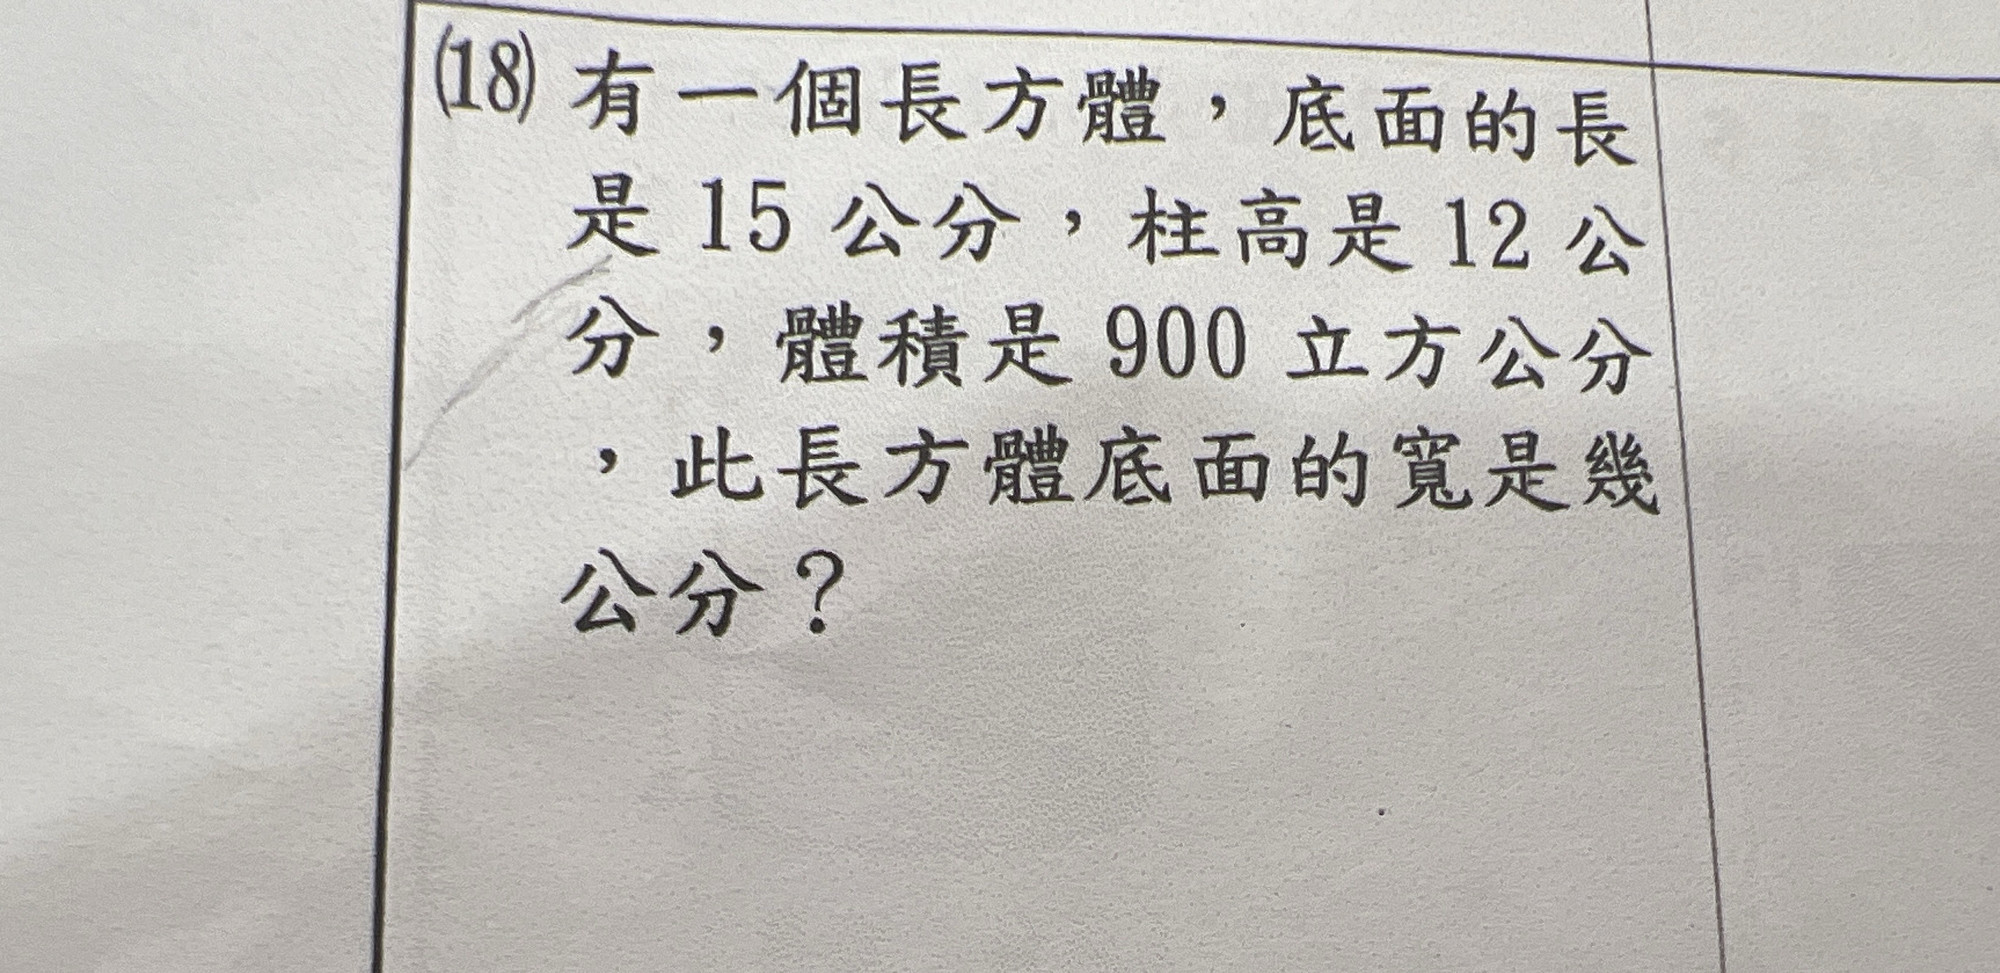 ⒅ 有一個長方體，底面的長
是 15 公分，柱高是 12 公
分，體積是 900 立方公分
，此長方體底面的寬是幾
公分？